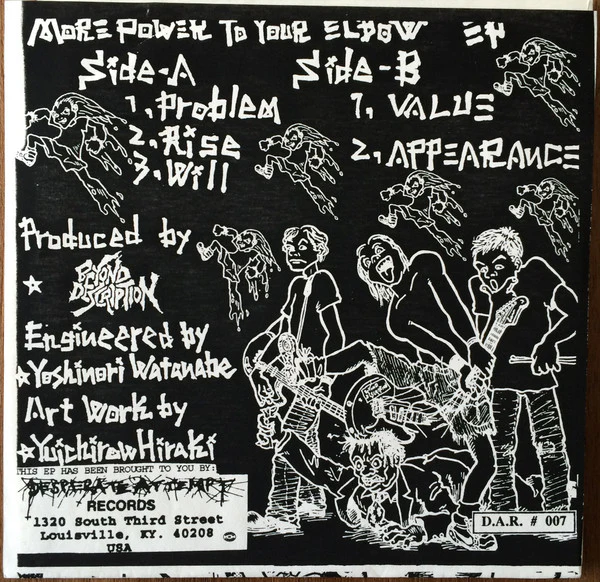 MORE POWER TO YOUR ELBOW EP
Side-A Side-B
1. Problem 1. VALUE
2. Rise 2. APPEARANCE
3. Will
Produced by
☆ BEYOND DESCRIPTION
Engineered by
☆Yoshinori Watanabe
Art Work by
☆Yuichirow Hiraki
THIS EP HAS BEEN BROUGHT TO YOU BY:
DESPERATE ATTEMPT
RECORDS
1320 South Third Street
Louisville, KY. 40208
USA
D.A.R. # 007